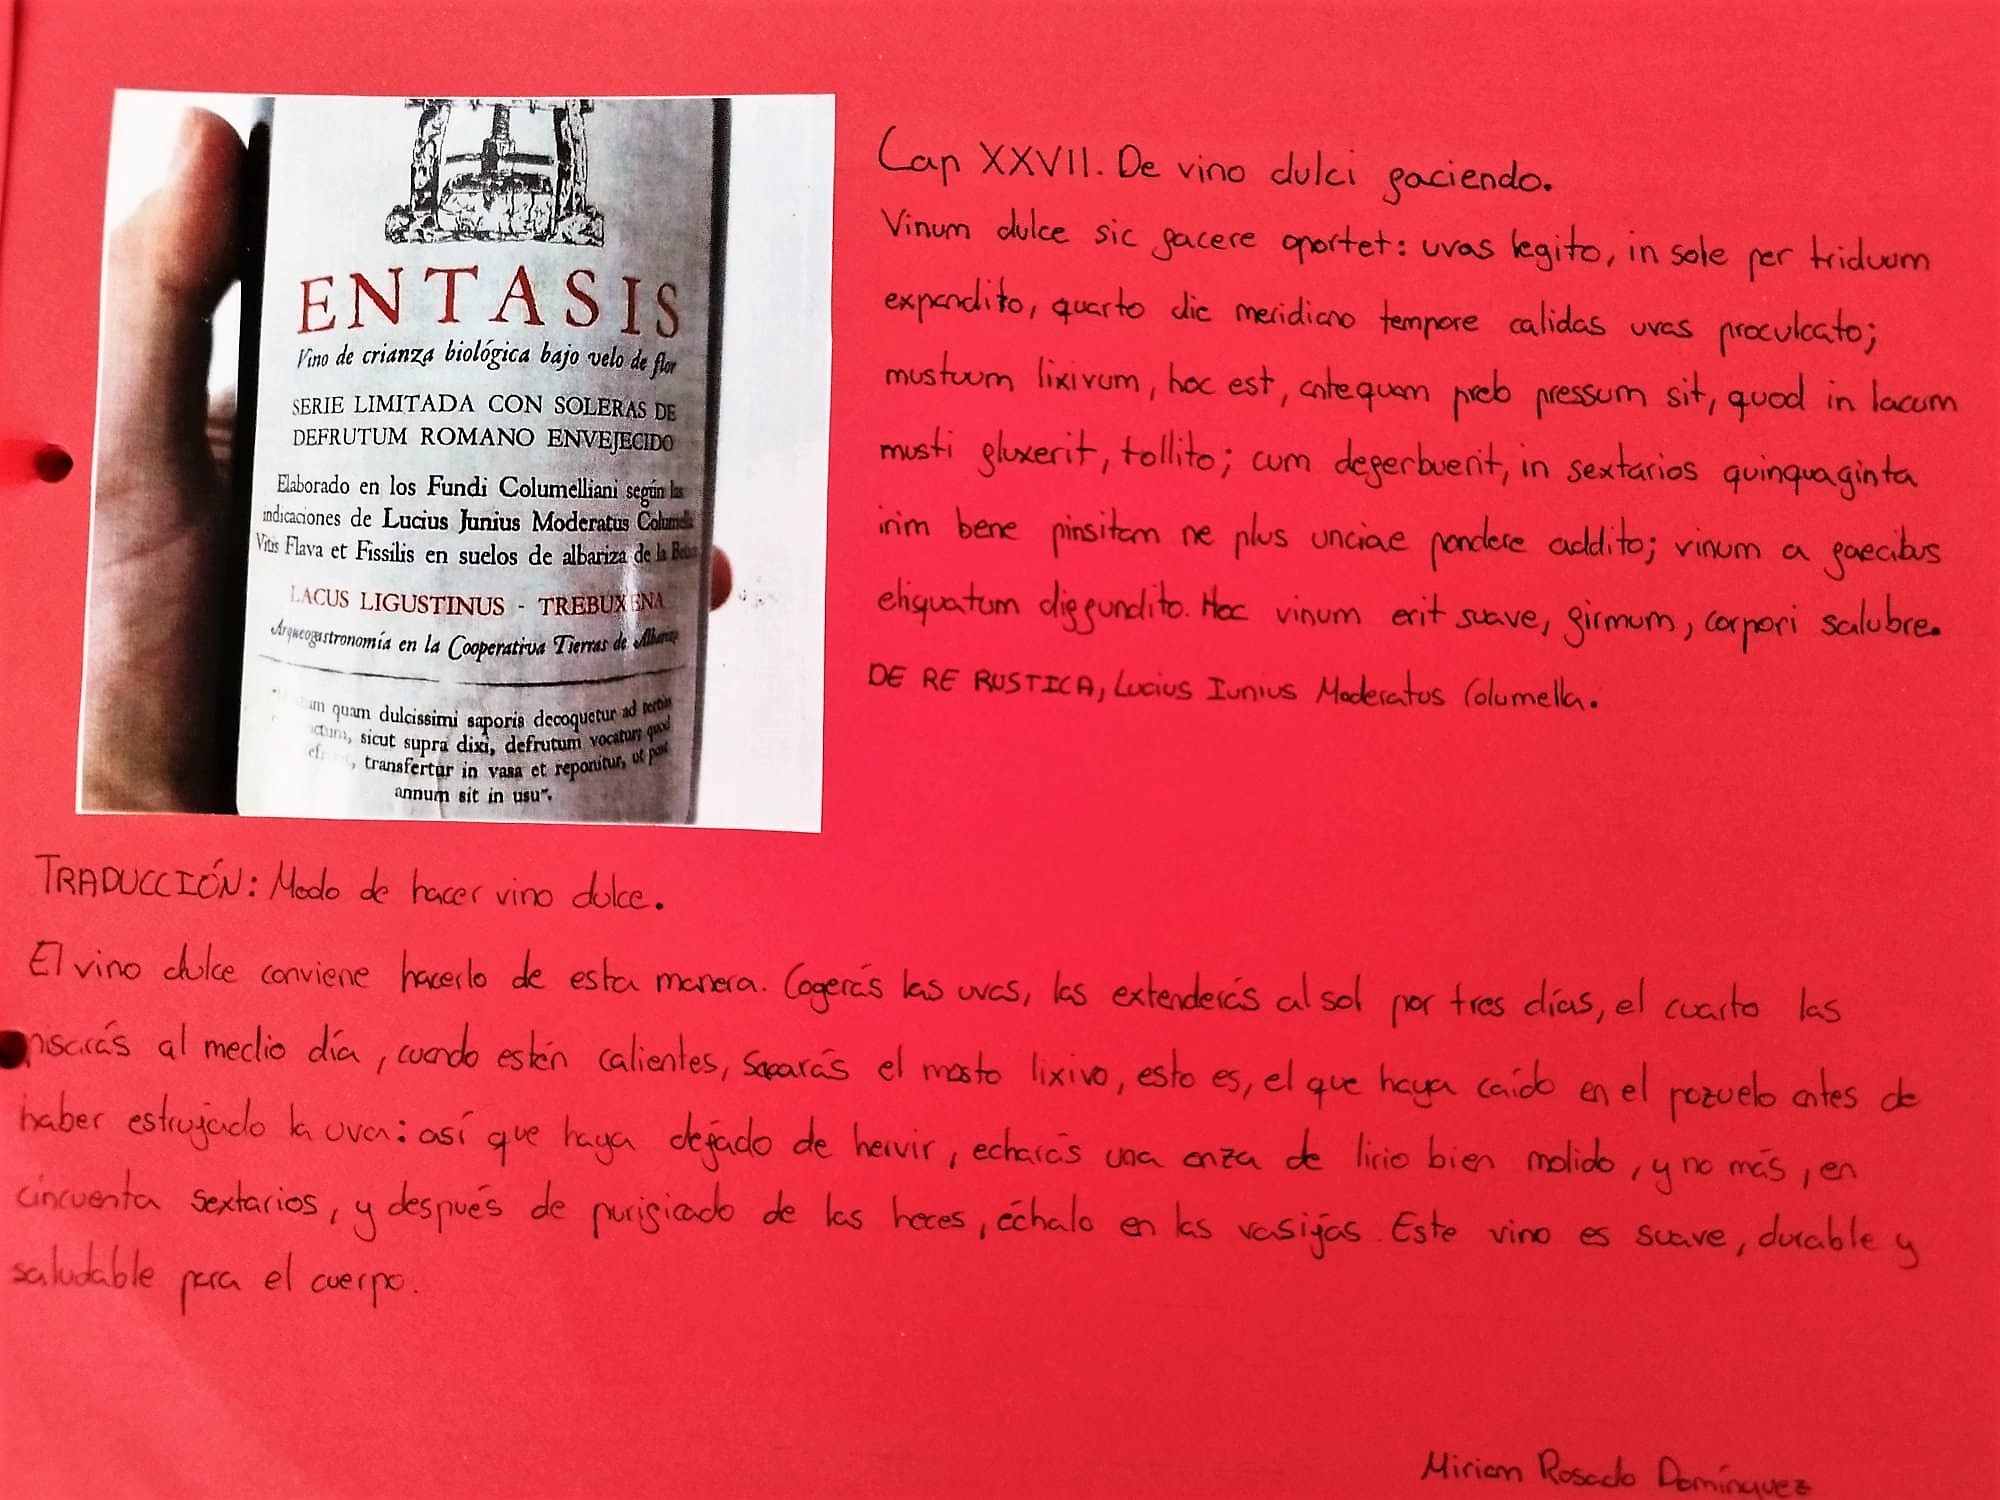 ENTASIS
Vino de crianza biológica bajo velo de flor
SERIE LIMITADA CON SOLERAS DE
DEFRUTUM ROMANO ENVEJECIDO
Elaborado en los Fundi Columelliani según las
indicaciones de Lucius Junius Moderatus
Vitis Flava et Fissilis en suelos de albariza de la
LACUS LIGUSTINUS - TREBUXENA
Arqueogastronomía en la Cooperativa Tierras de Albariza
quam dulcissimi saporis decoquetur ad
sicut supra dixi, defrutum vocatur; quod
transfertur in vasa et reponitur, ut post
annum sit in usu".
Cap XXVII. De vino dulci faciendo.
Vinum dulce sic facere oportet: uvas legito, in sole per triduum
expandito, quarto die meridiano tempore calidas uvas proculcato;
mustuum lixivum, hoc est, antequam prelo pressum sit, quod in lacum
musti fluxerit, tollito; cum deferbuerit, in sextarios quinquaginta
irim bene pinsitam ne plus unciae pondere addito; vinum a faecibus
eliquatum diffundito. Hoc vinum erit suave, firmum, corpori salubre.
DE RE RUSTICA, Lucius Iunius Moderatus Columella.
TRADUCCIÓN: Modo de hacer vino dulce.
El vino dulce conviene hacerlo de esta manera. Cogerás las uvas, las extenderás al sol por tres días, el cuarto las
pisarás al medio día, cuando estén calientes, sacarás el mosto lixivo, esto es, el que haya caído en el pozuelo antes de
haber estrujado la uva: así que haya dejado de hervir, echarás una onza de lirio bien molido, y no más, en
cincuenta sextarios, y después de purificado de las heces, échalo en las vasijas. Este vino es suave, durable y
saludable para el cuerpo.
Miriam Rosado Domínguez